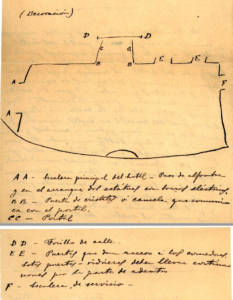 (Decoración)
D D
C C
B B
E E
A
F
A
A A - Escalera principal del hotel - Paso de alfombra
y en el arranque dos estatuas con brazos eléctricos.
B B - Puerta de cristales ó cancela que comunica
con el portal.
C C - Portal
D D - Forillo de calle.
E E - Puertas que dan acceso á los comedores.
Estas puertas - vidrieras deben llevar cortina
por la parte de adentro
F - Escalera de servicio -